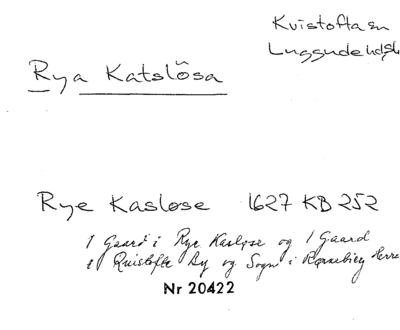 Kvistofta sn
Luggude hd
Rya Katslösa
Rye Kasløse 1627 KB 252
1 Gaard i Rye Kasløse og 1 Gaard
i Quistofte By og Sogn i Rønnebierg Herre
Nr 20422